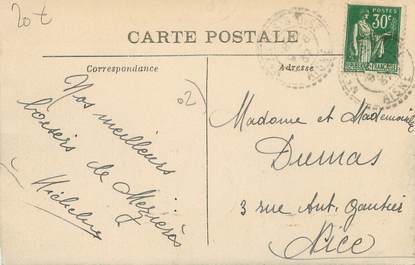 20t
CARTE POSTALE
Correspondance
Adresse
POSTES
30c
REPUBLIQUE FRANÇAISE
AISNE
AISNE
02
Nos meilleurs
baisers de Mézières
Micheline
Madame et Mademoiselle
Dumas
3 rue Ant. Gautier
Nice